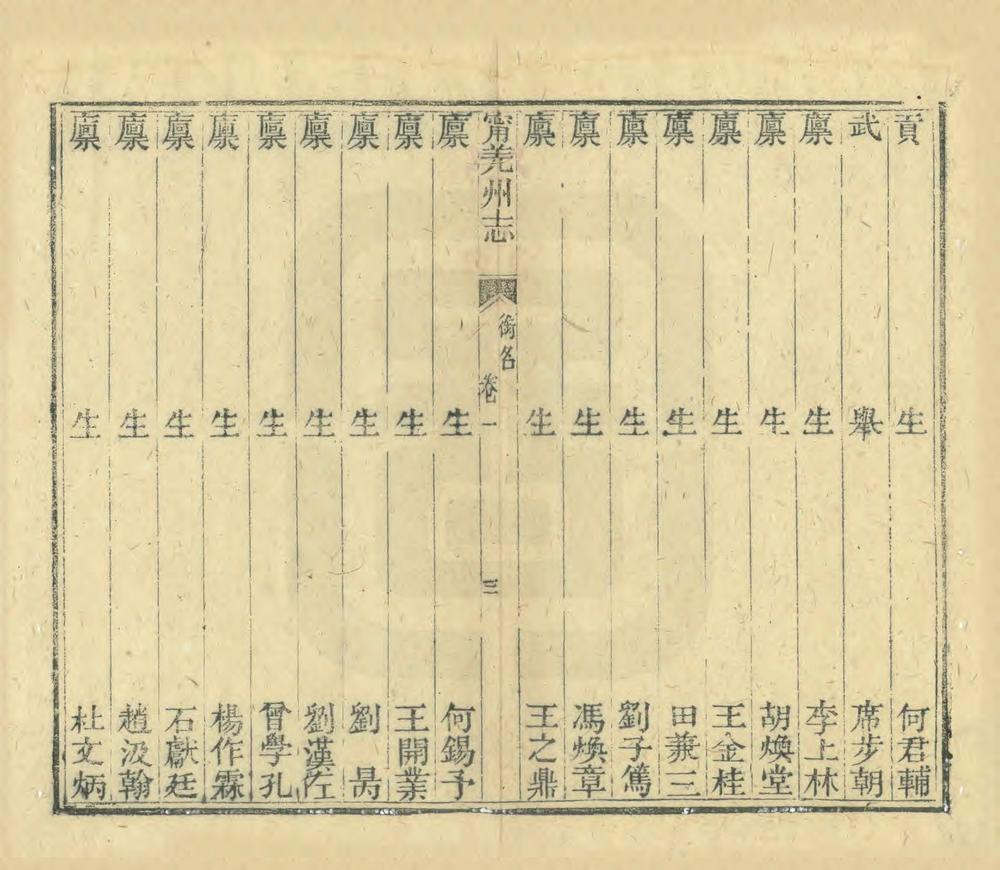 貢生何君輔
武舉席步朝
廪生李上林
廪生胡煥堂
廪生王金桂
廪生田兼三
廪生劉子篤
廪生馮煥章
廪生王之鼎
甯羌州志 銜名 卷一 三
廪生何錫予
廪生王開業
廪生劉昺
廪生劉漢佐
廪生曾學孔
廪生楊作霖
廪生石獻廷
廪生趙汲翰
廪生杜文炳